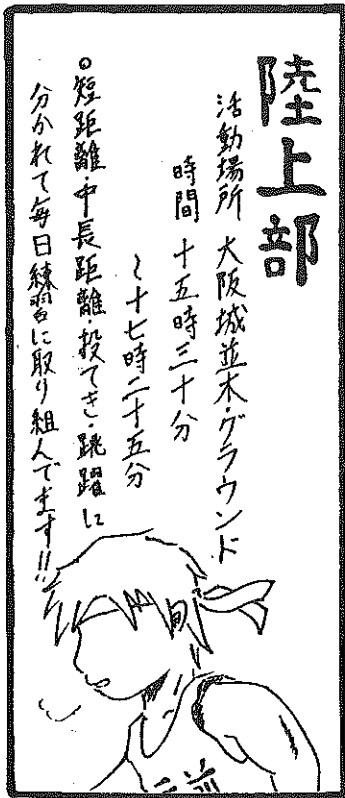 陸上部
活動場所 大阪城並木・グラウンド
時間 十五時三十分
～十七時二十五分
○短距離・中長距離・投てき・跳躍に
分かれて毎日練習に取り組んでます!!